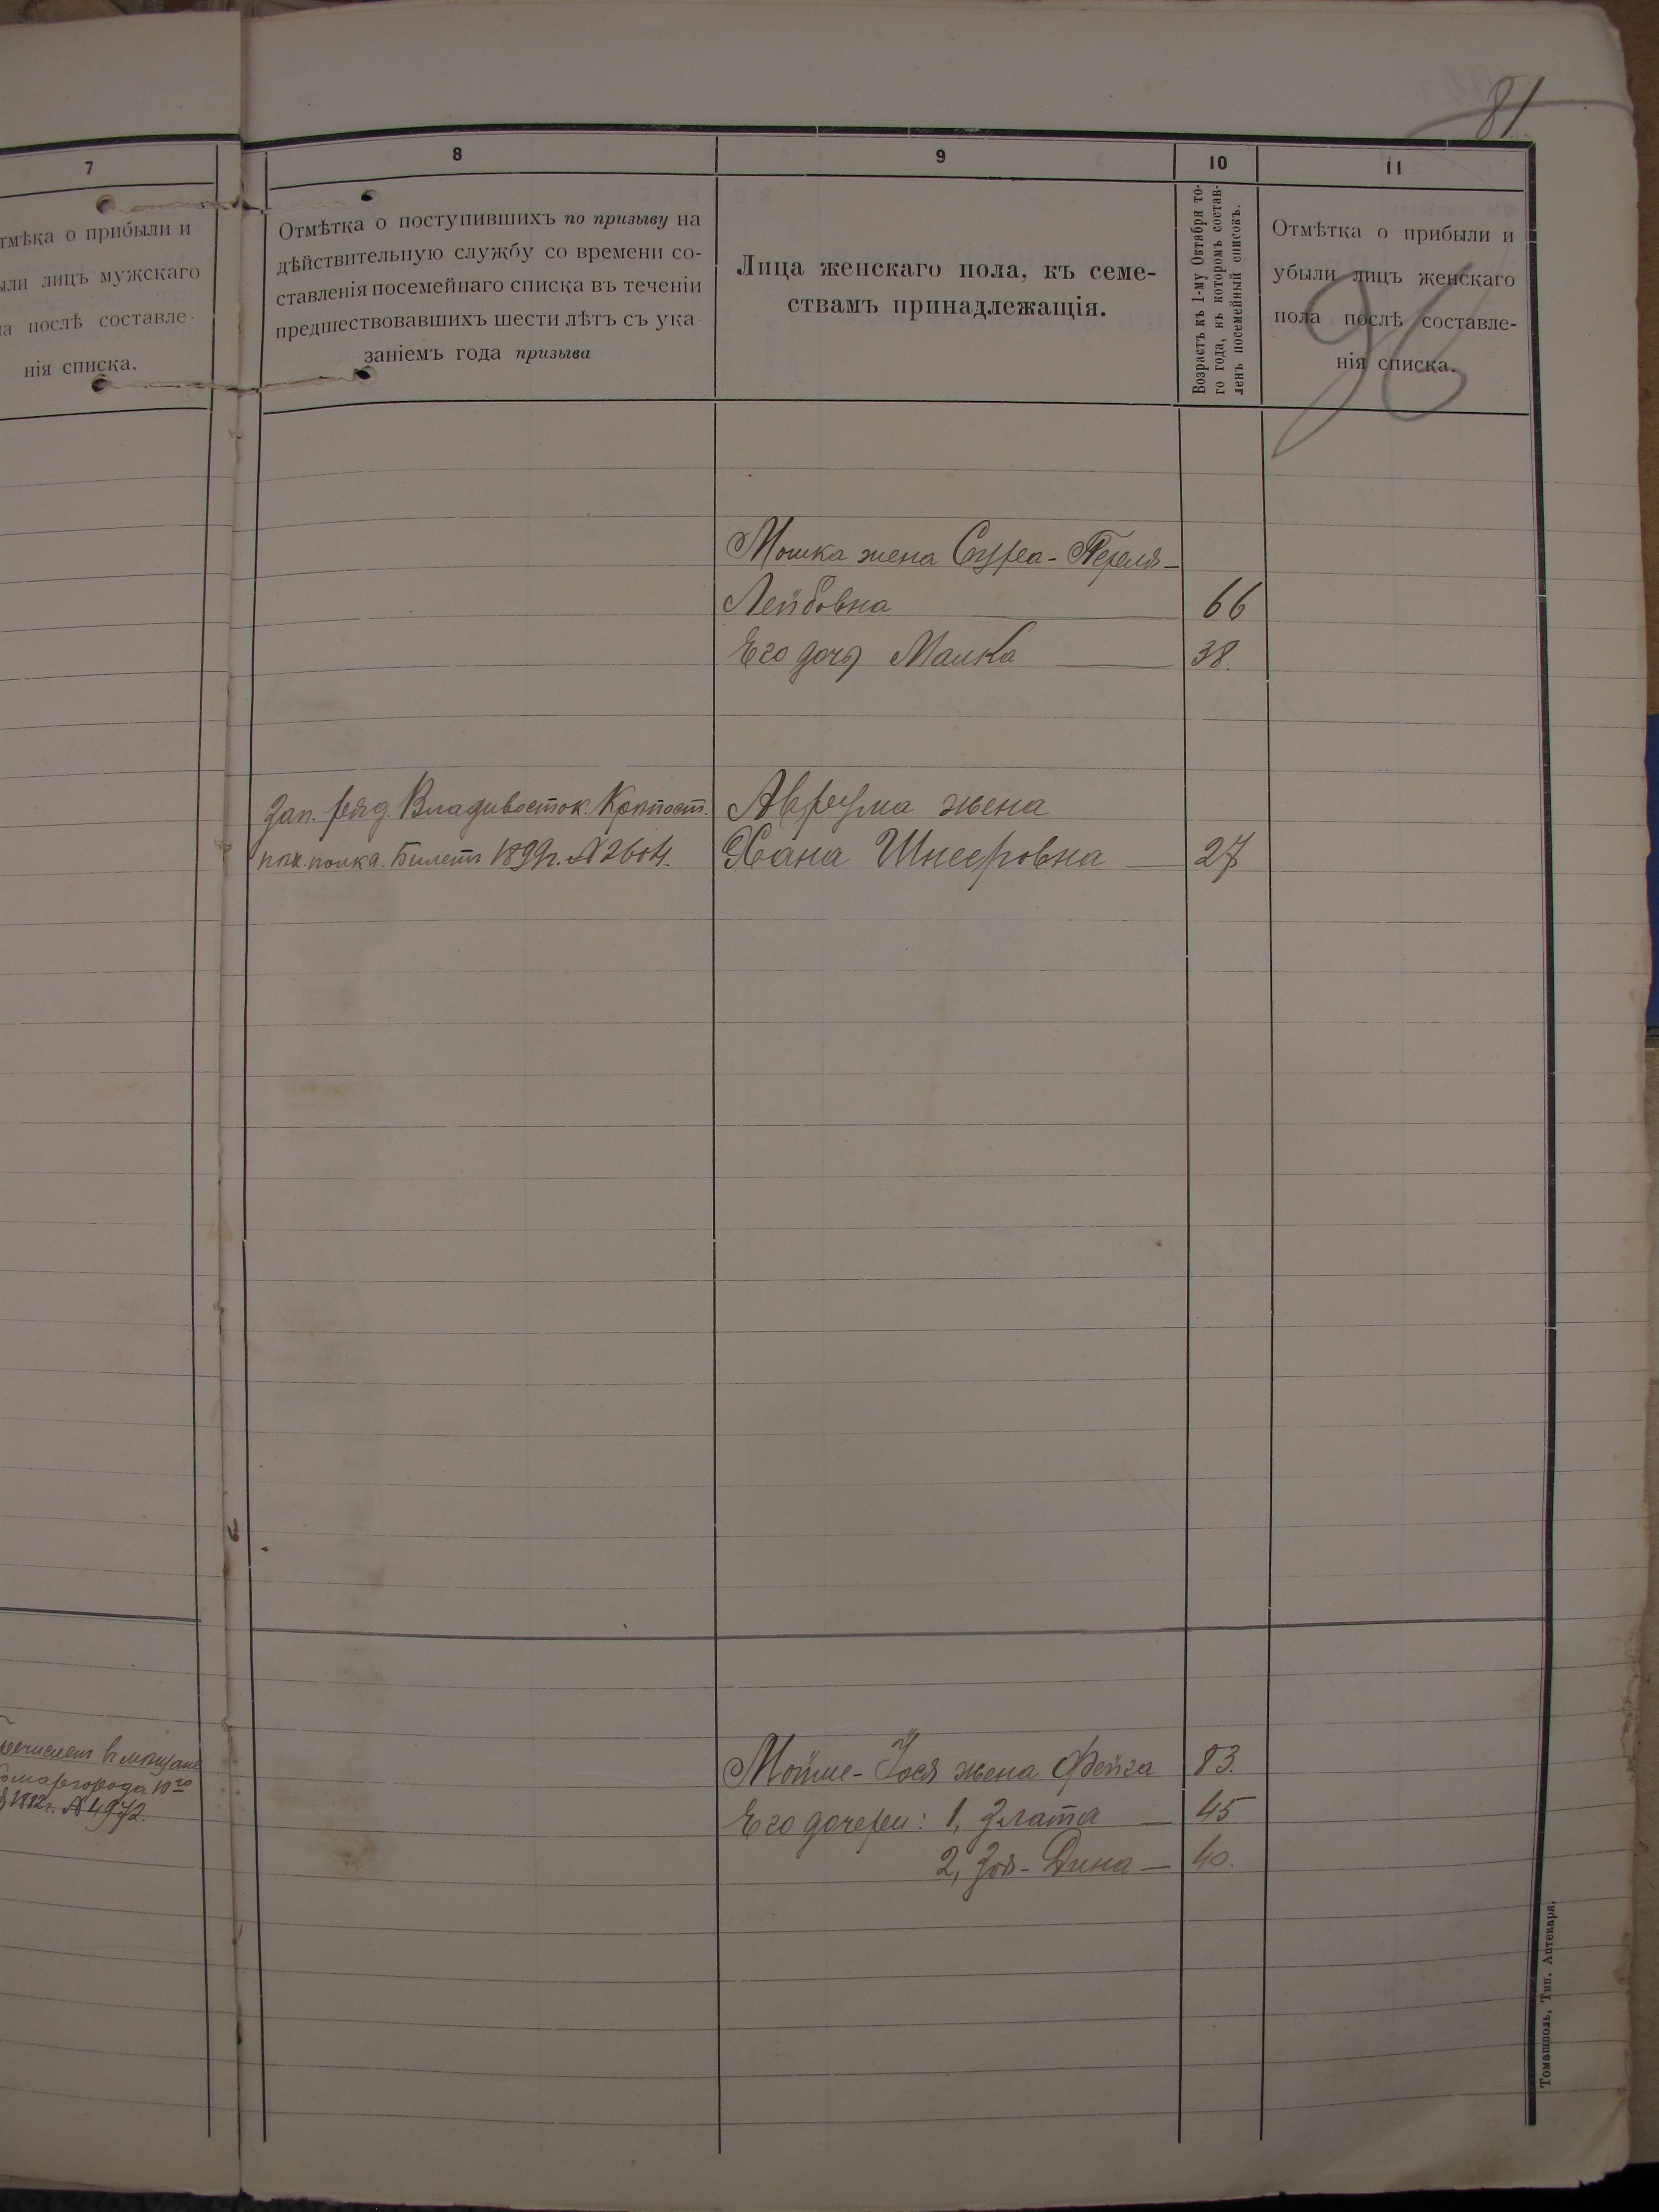 81
7
тмѣка о прибыли и
ыли лицъ мужскаго
ла послѣ составле-
нія списка.
8
Отмѣтка о поступившихъ по призыву на
дѣйствительную службу со времени со-
ставленія посемейнаго списка въ теченіи
предшествовавшихъ шести лѣтъ съ ука
заніемъ года призыва
9
Лица женскаго пола, къ семе-
ствамъ принадлежащія.
10
Возрастъ къ 1-му Октября то-
го года, въ которомъ состав-
ленъ посемейный списокъ.
11
Отмѣтка о прибыли и
убыли лицъ женскаго
пола послѣ составле-
нія списка.
96
Мошка жена Сурa-Переля-
Лейбовна 66
Его дочь Малка 38.
Зап. ряд. Владивосток. Крѣпост.
пѣх. полка. Билетъ 1899г. № 2604.
Аврума жена
Хана Шнееровна 27
мѣщане
1882г. № 4972.
Мойше-Іося жена Фейга 83.
Его дочери: 1, Злата 45
2, Зоя-Дина 40.
Томашполь, Тип. Аптекаря.